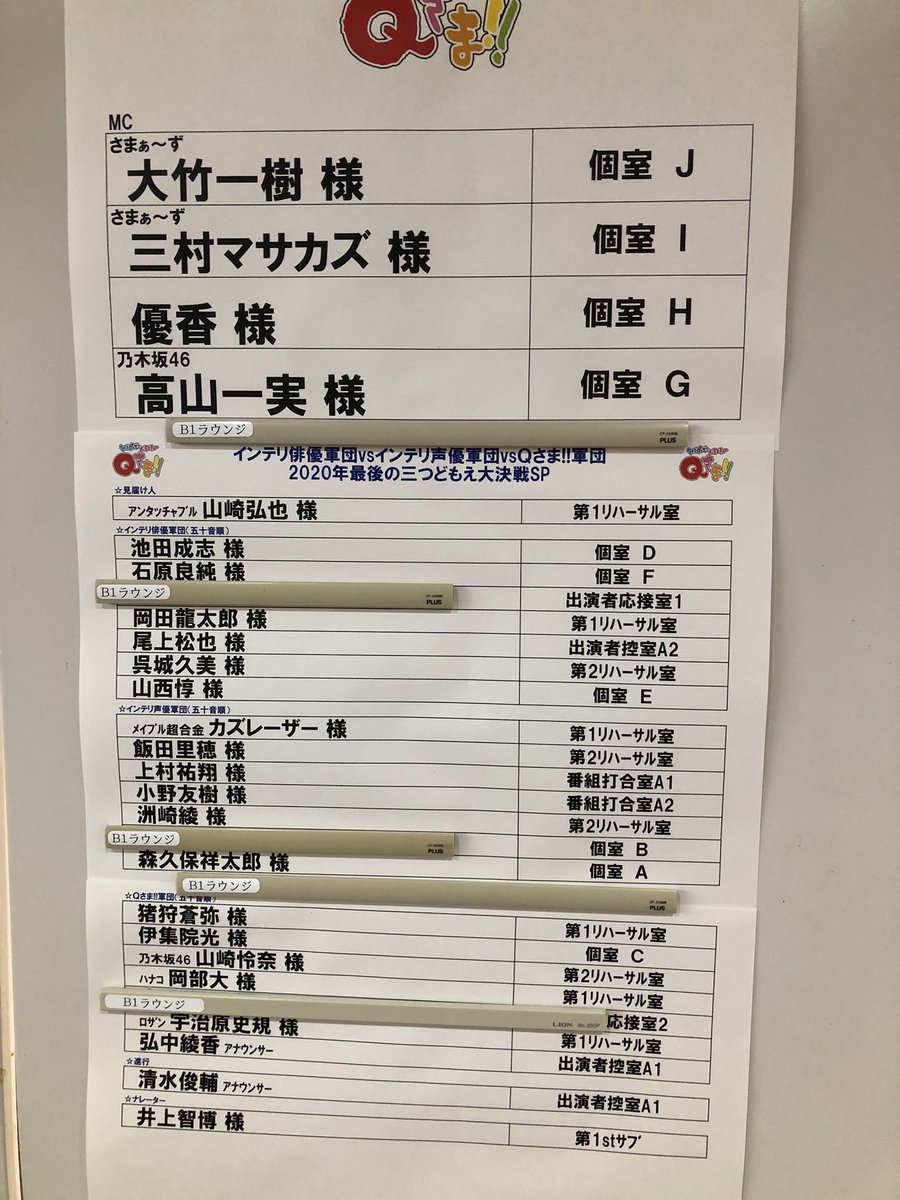 Qさま!!
MC
さまぁ～ず
大竹一樹 様 個室 J
さまぁ～ず
三村マサカズ 様 個室 I
優香 様 個室 H
乃木坂46
高山一実 様 個室 G
B1ラウンジ
PLUS
インテリ俳優軍団vsインテリ声優軍団vsQさま!!軍団
Qさま!!
2020年最後の三つどもえ大決戦SP
Qさま!!
☆見届け人
アンタッチャブル 山崎弘也 様 第1リハーサル室
☆インテリ俳優軍団(五十音順)
池田成志 様 個室 D
石原良純 様 個室 F
B1ラウンジ PLUS 出演者応接室1
岡田龍太郎 様 第1リハーサル室
尾上松也 様 出演者控室A2
呉城久美 様 第2リハーサル室
山西惇 様 個室 E
☆インテリ声優軍団(五十音順)
メイプル超合金 カズレーザー 様 第1リハーサル室
飯田里穂 様 第2リハーサル室
上村祐翔 様 番組打合室A1
小野友樹 様 番組打合室A2
洲崎綾 様 第2リハーサル室
B1ラウンジ PLUS 個室 B
森久保祥太郎 様 個室 A
B1ラウンジ
PLUS
☆Qさま!!軍団(五十音順)
猪狩蒼弥 様 第1リハーサル室
伊集院光 様 個室 C
乃木坂46 山崎怜奈 様 第2リハーサル室
ハナコ 岡部大 様 第1リハーサル室
B1ラウンジ LION No.300P 応接室2
ロザン 宇治原史規 様 第1リハーサル室
弘中綾香 アナウンサー 出演者控室A1
☆進行
清水俊輔 アナウンサー 出演者控室A1
☆ナレーター
井上智博 様 第1stサブ